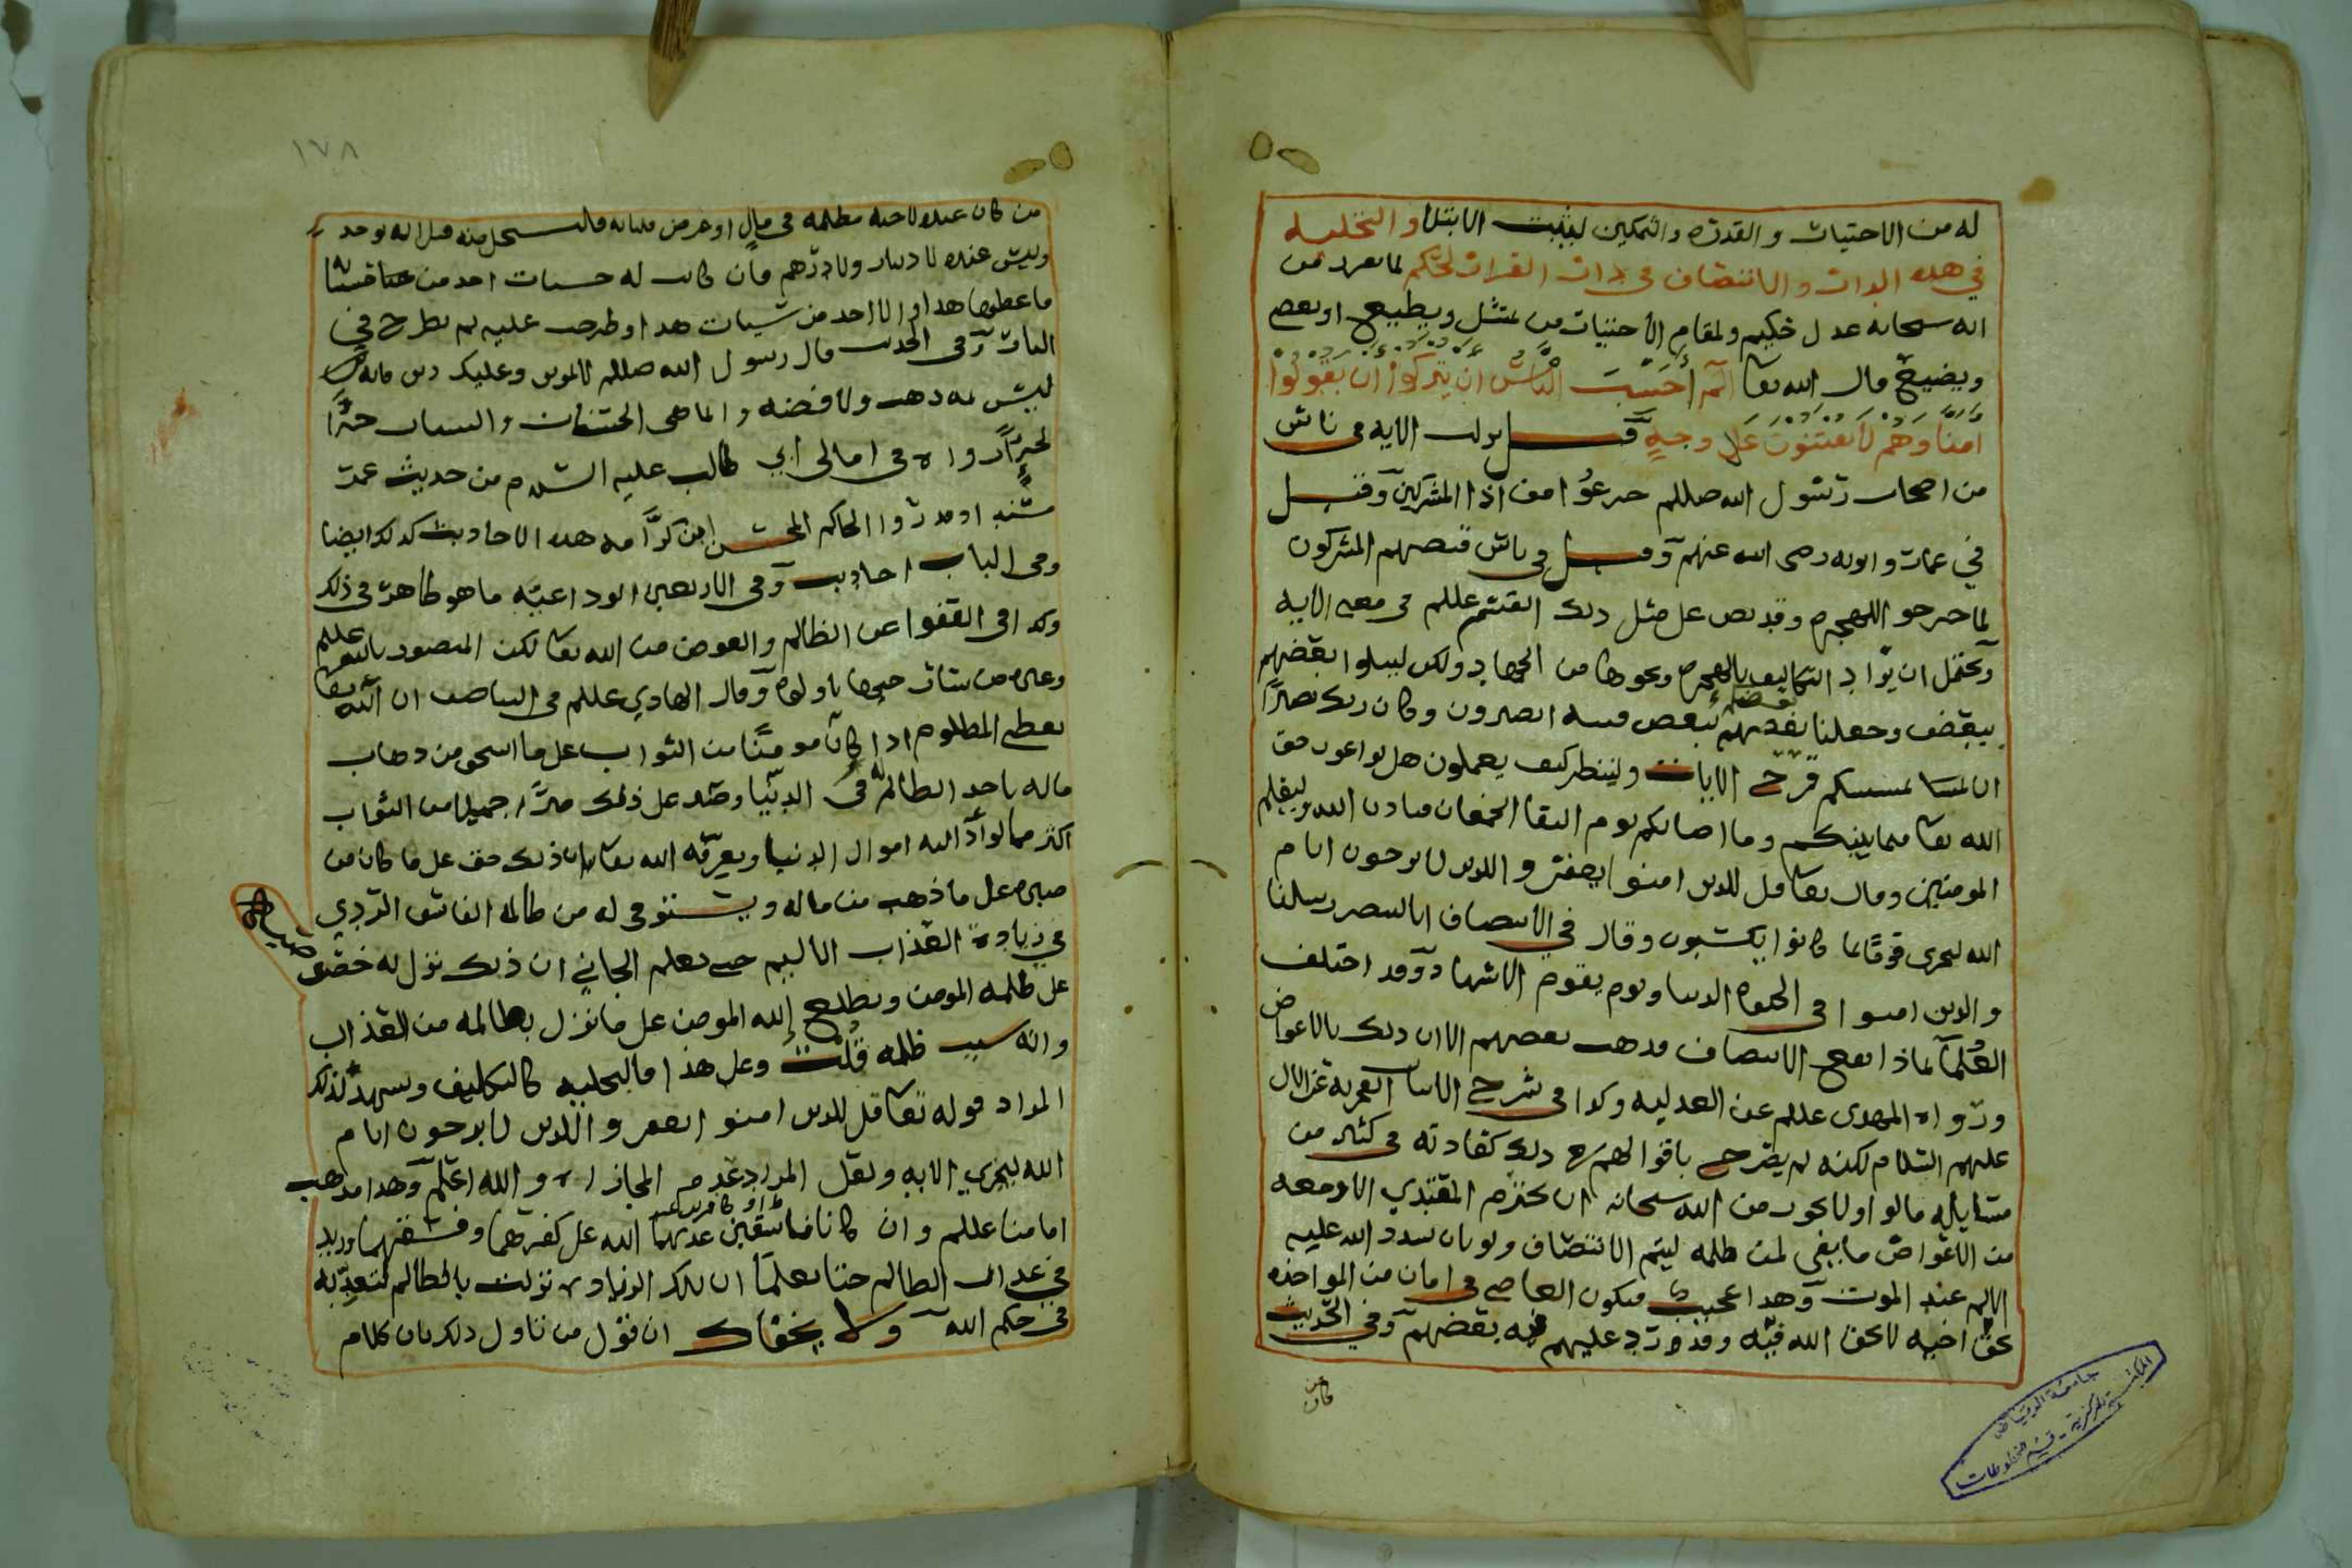 له من الاختيار والقدره والتمكين ليثبت الابتلا والتخليه
في هذه الدار والانتصاف في دار القرار لحكم لما تعرد من
انه سبحانه عدل حكيم ولمقام الاختبار من يمتثل ويطيع او يعصي
ويضيع قال الله تعا الم أحسب الناس ان يتركوا ان يقولوا
امنا وهم لا يفتنون على وجه قيل نزلت الايه في ناس
من اصحاب رسول الله صللم جزعوا من اذا المشركين وقيل
في عمار وابويه رضى الله عنهم وقيل في ناس فتنهم المشركون
لما خرجوا الهجره وقد نص على مثل ذلك القسم عللم في معنى الايه
ويحتمل ان يراد التكاليف بالهجره ونحوها من الجهاد ولكن ليبلوا بعضهم
ببعض وجعلنا بعضهم لبعض فتنه اتصبرون وكان ربك بصيرًا
ان يمسسكم قرح الايات ولينظر كيف يعملون هل يراعون حق
الله تعا فيما بينكم وما اصابكم يوم التقا الجمعان فباذن الله وليعلم
المومنين وقال تعا قل للذين امنوا يغفروا للذين لا يرجون ايام
الله ليجزى قومًا بما كانوا يكسبون وقال في الانتصاف انا لننصر رسلنا
والذين امنوا في الحيوه الدنيا ويوم يقوم الاشهاد وقد اختلف
العلمآ بماذا يقع الانتصاف فذهب بعضهم الا ان ذلك بالاعواض
ورواه المهدى عللم عن العدليه وكذا في شرح الابيات الفخريه عن الال
عليهم السلام لكنه لم يصرح باقوالهم في ذلك كعادته في كثير من
مسايله قالوا ولا يجوز من الله سبحانه ان يخترم المعتدي الا ومعه
من الاعواض ما يفي لمن ظلمه ليتم الانتصاف ولو بان يشدد الله عليه
الالم عند الموت وهذا عجيب فيكون العاصي في امان من المواخذه
بحق اخيه لا بحق الله فيه وقد ورد عليهم فيه بعضهم وفي الحديث
من كان
جامعة الرياض
المكتبة المركزية - قسم المخطوطات
١٧٨
من كان عنده لاخيه مظلمه في مال او عرض فلياته فليستحل منه قبل ان يوخذ
وليس عنده لا دينار ولا درهم فان كانت له حسنات اخذ من حسناته
فاعطيها هذا والا اخذ من سيئات هذا وطرحت عليه ثم يطرح في
النار وفي الحديث قال رسول الله صللم لا تموتن وعليك دين فانه
ليس ثمه ذهب ولا فضه وانما هي الحسنات والسيات جزآ
بجزآ رواه في امالى ابي طالب عليه السلام من حديث عمر
وقد روا الحاكم المحسن ابن كرّامه هذه الاحاديث كذلك ايضا
وفي الباب احاديث وفي الاربعين الوداعيه ما هو ظاهر في ذلك
وكذا في العفوا عن الظالم والعوض من الله تعا لكن المنصور بالله عللم
وغيره من سادتـ جيحها تاولوه وقال الهادي عللم في الباصف ان الله تعا
يعطي المظلوم اذا كان مومنًا من الثواب على ما استحق من ذهاب
ماله باخذ الظالم له في الدنيا وصبره على ذلك صبرًا جميلا من الثواب
اكثر مما لو أدّ اليه اموال الدنيا ويعرفه الله تعا بان ذلك حق على ما كان من
صبره على ما ذهب من ماله ويستوفي له من ظالمه الفاسق الردي
في زيادة العذاب الاليم حتى يعلم الجاني ان ذلك نزل به خصوصا
على ظلمه المومن ويطلع الله المومن على ما نزل بظالمه من العذاب
وانه بسبب ظلمه قُلْتُ وعلى هذا فالتخليه كالتكليف ويشهد لذلك
المراد قوله تعا قل للذين امنوا يغفروا للذين لا يرجون ايام
الله ليجزي الايه ولعل المراد عدم المجازاه والله اعلم وهذا مذهب
امامنا عللم وان كانا فاسقين او كافرين عذبهما الله على كفرهما وفسقهما وزيد
في عذاب الظالم حتا يعلما ان تلك الزياده نزلت بالظالم لتعديه
في حكم الله ولا يخفاك ان قول من تاول ذلك بان كلام